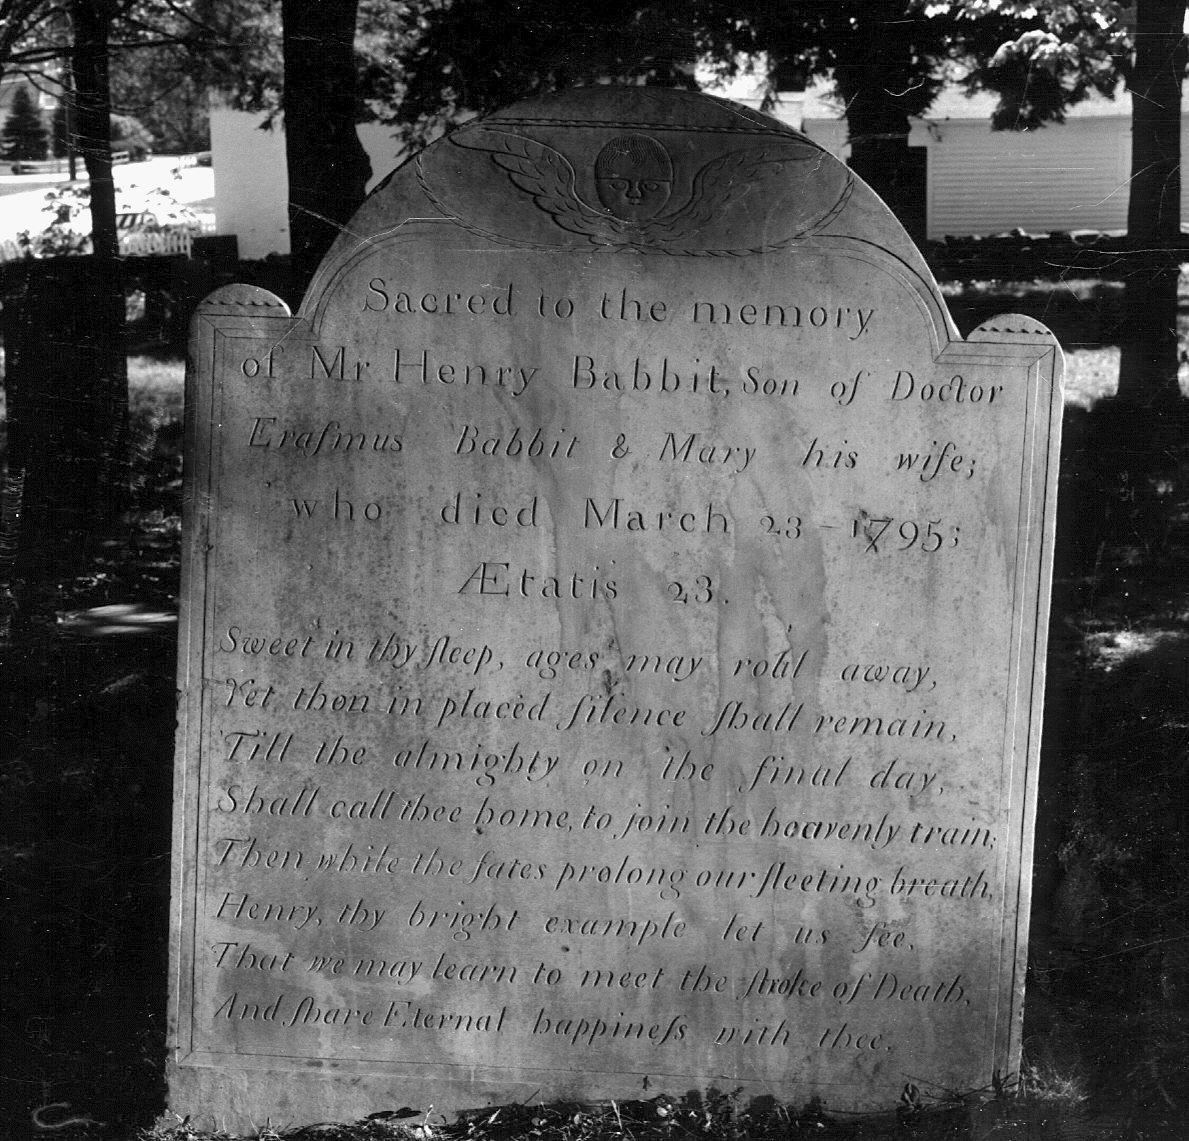 Sacred to the memory
of Mr Henry Babbit, Son of Doctor
Eraſmus Babbit & Mary his wife;
who died March 23 - 1795;
Ætatis 23.
Sweet in thy ſleep, ages may roll away,
Yet thou in placed ſilence ſhall remain,
Till the almighty on the final day,
Shall call thee home, to join the heavenly train;
Then while the fates prolong our ſleeting breath,
Henry, thy bright example let us ſee,
That we may learn to meet the ſtroke of Death,
And ſhare Eternal happineſs with thee.